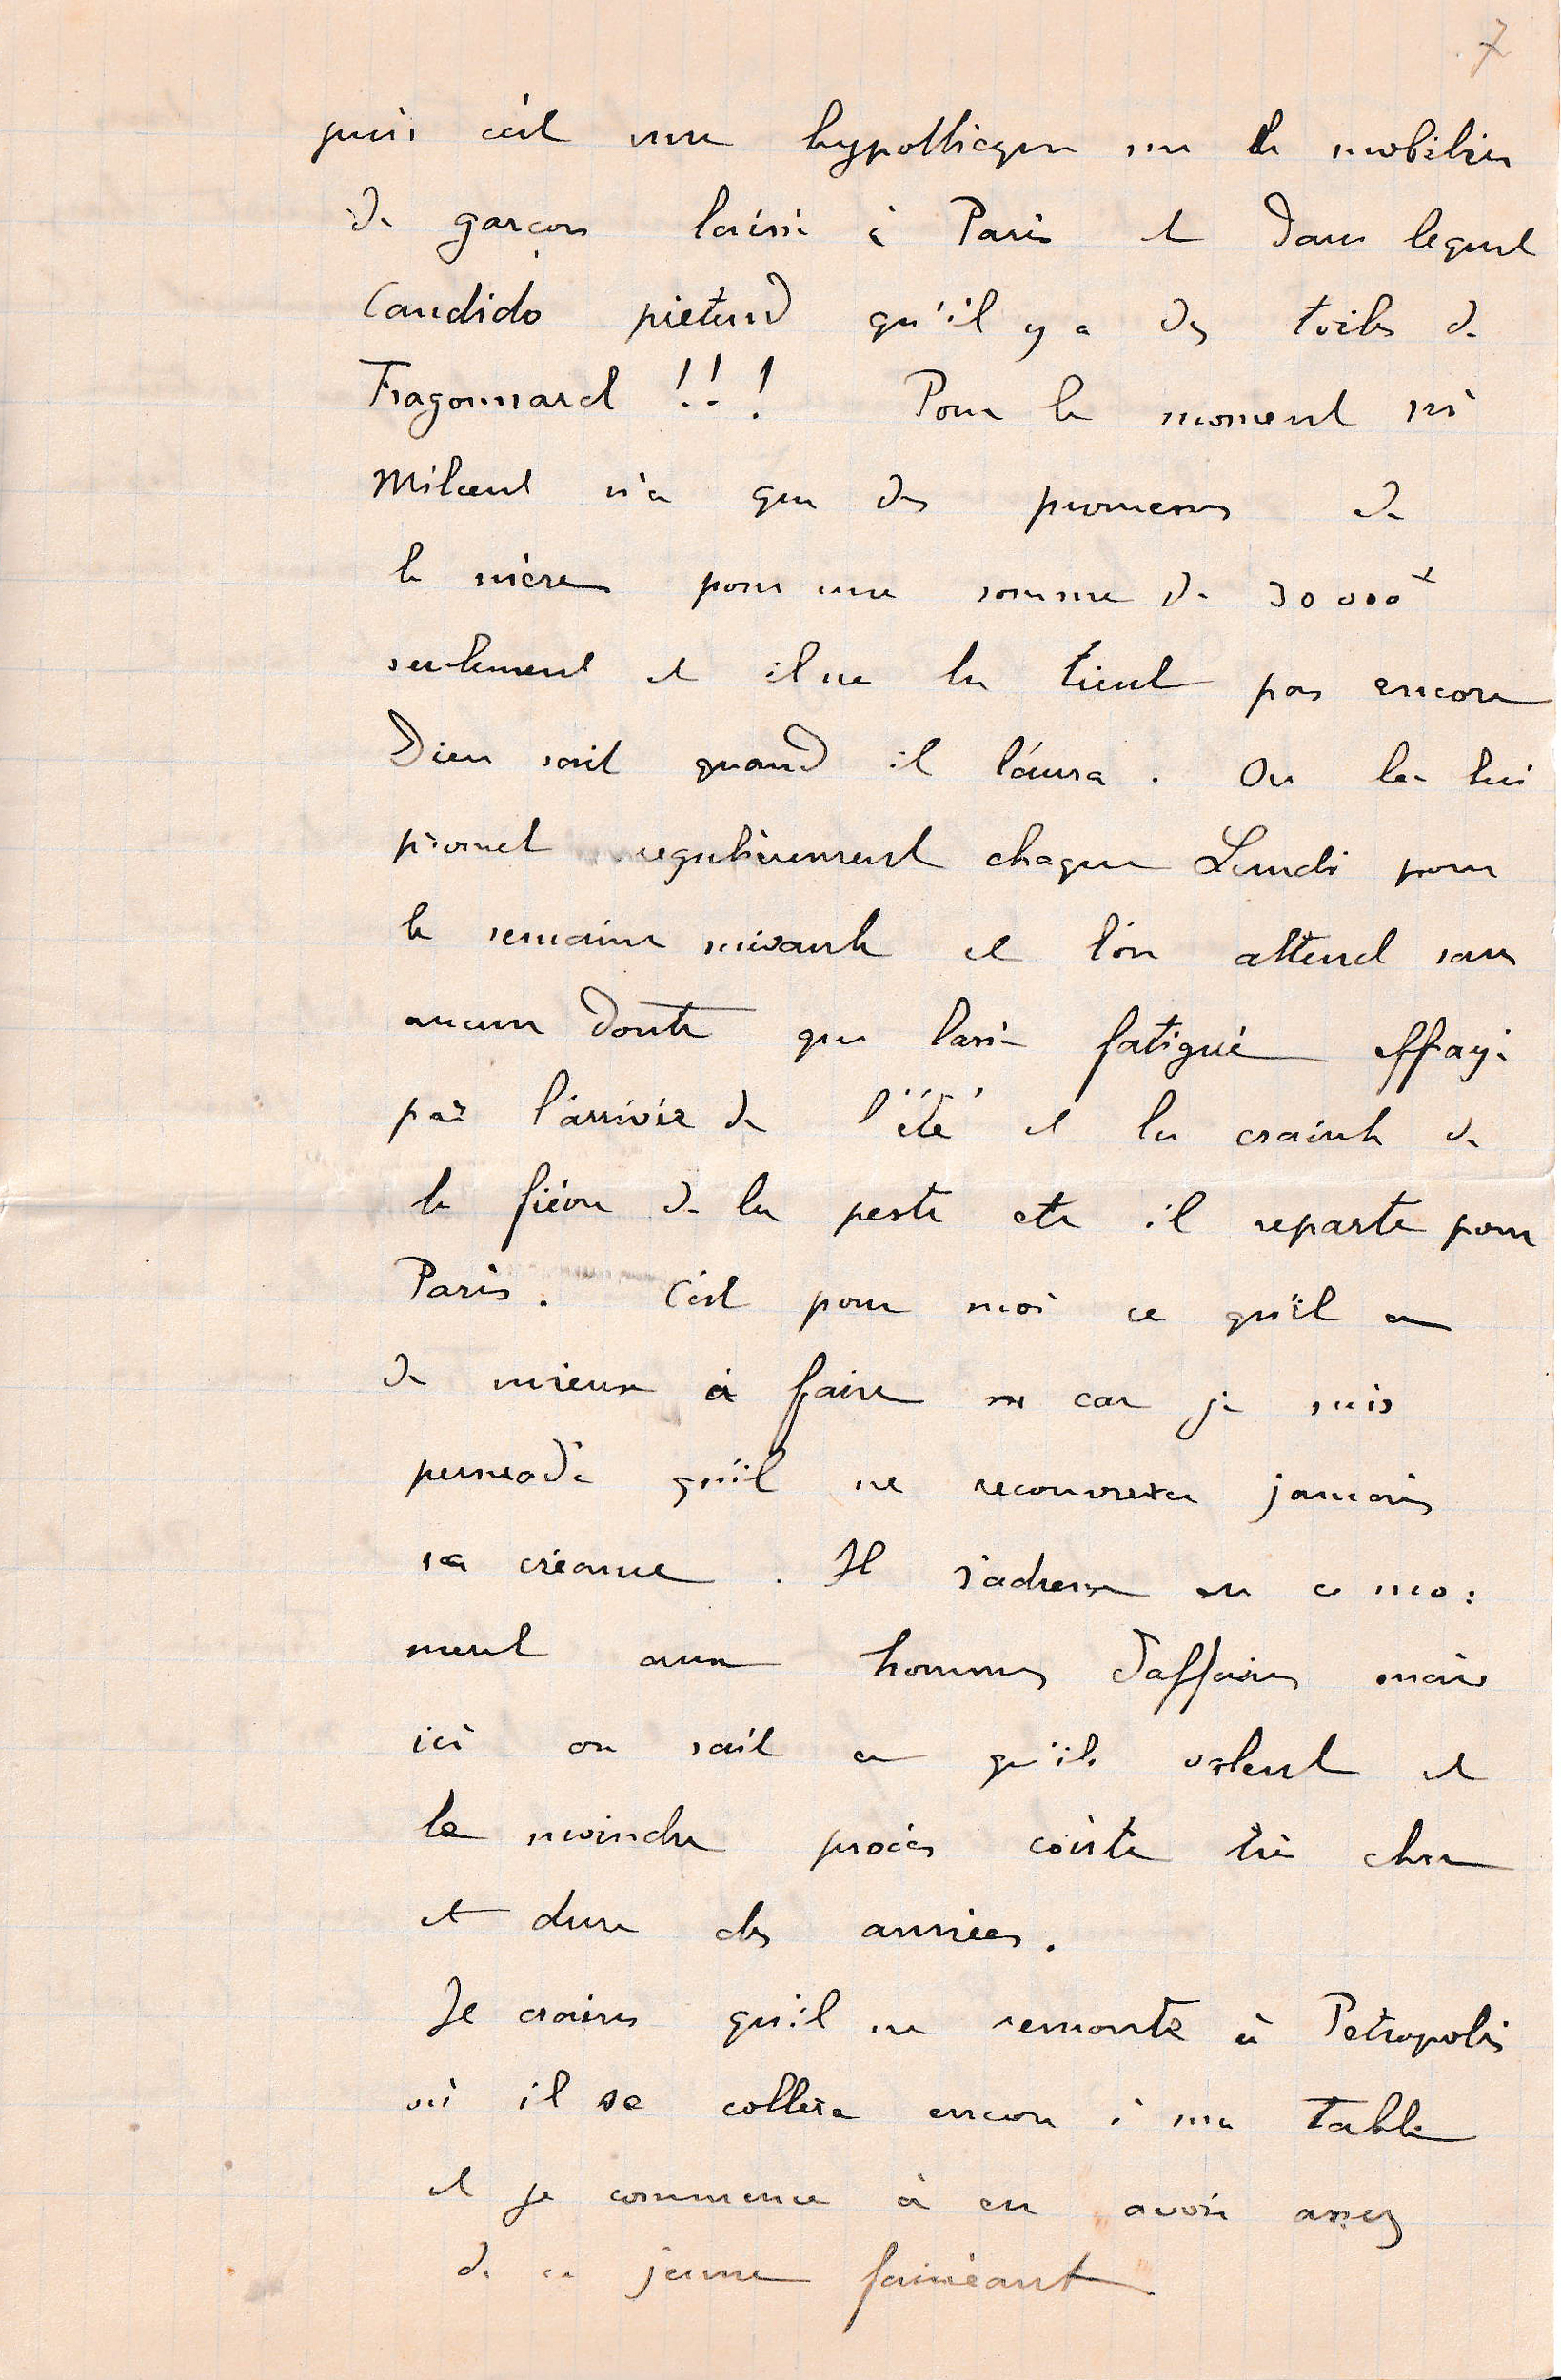 7
puis c'est une hypothèque sur le mobilier
de garçon laissé à Paris et dans lequel
Candido prétend qu'il y a des toiles de
Fragonnard !!! Pour le moment
Milcent n'a que des promesses de
la mère pour une somme de 30 000f
seulement et il ne la tient pas encore
Dieu sait quand il l'aura. On la lui
promet regulièrement chaque Lundi pour
la semaine suivante et l'on attend sans
aucun doute que lassé fatigué effrayé
par l'arrivée de l'été et la crainte de
la fièvre de la peste etc il reparte pour
Paris. C'est pour moi ce qu'il a
de mieux à faire car je suis
persuadé qu'il ne recouvrera jamais
sa créance. Il s'adresse en ce mo:
ment aux hommes d'affaires mais
ici on sait ce qu'ils valent et
le moindre procès coûte très cher
et dure des années.
Je crains qu'il ne remonte à Pétropolis
où il se collera encore à ma table
et je commence à en avoir assez
de ce jeune fainéant